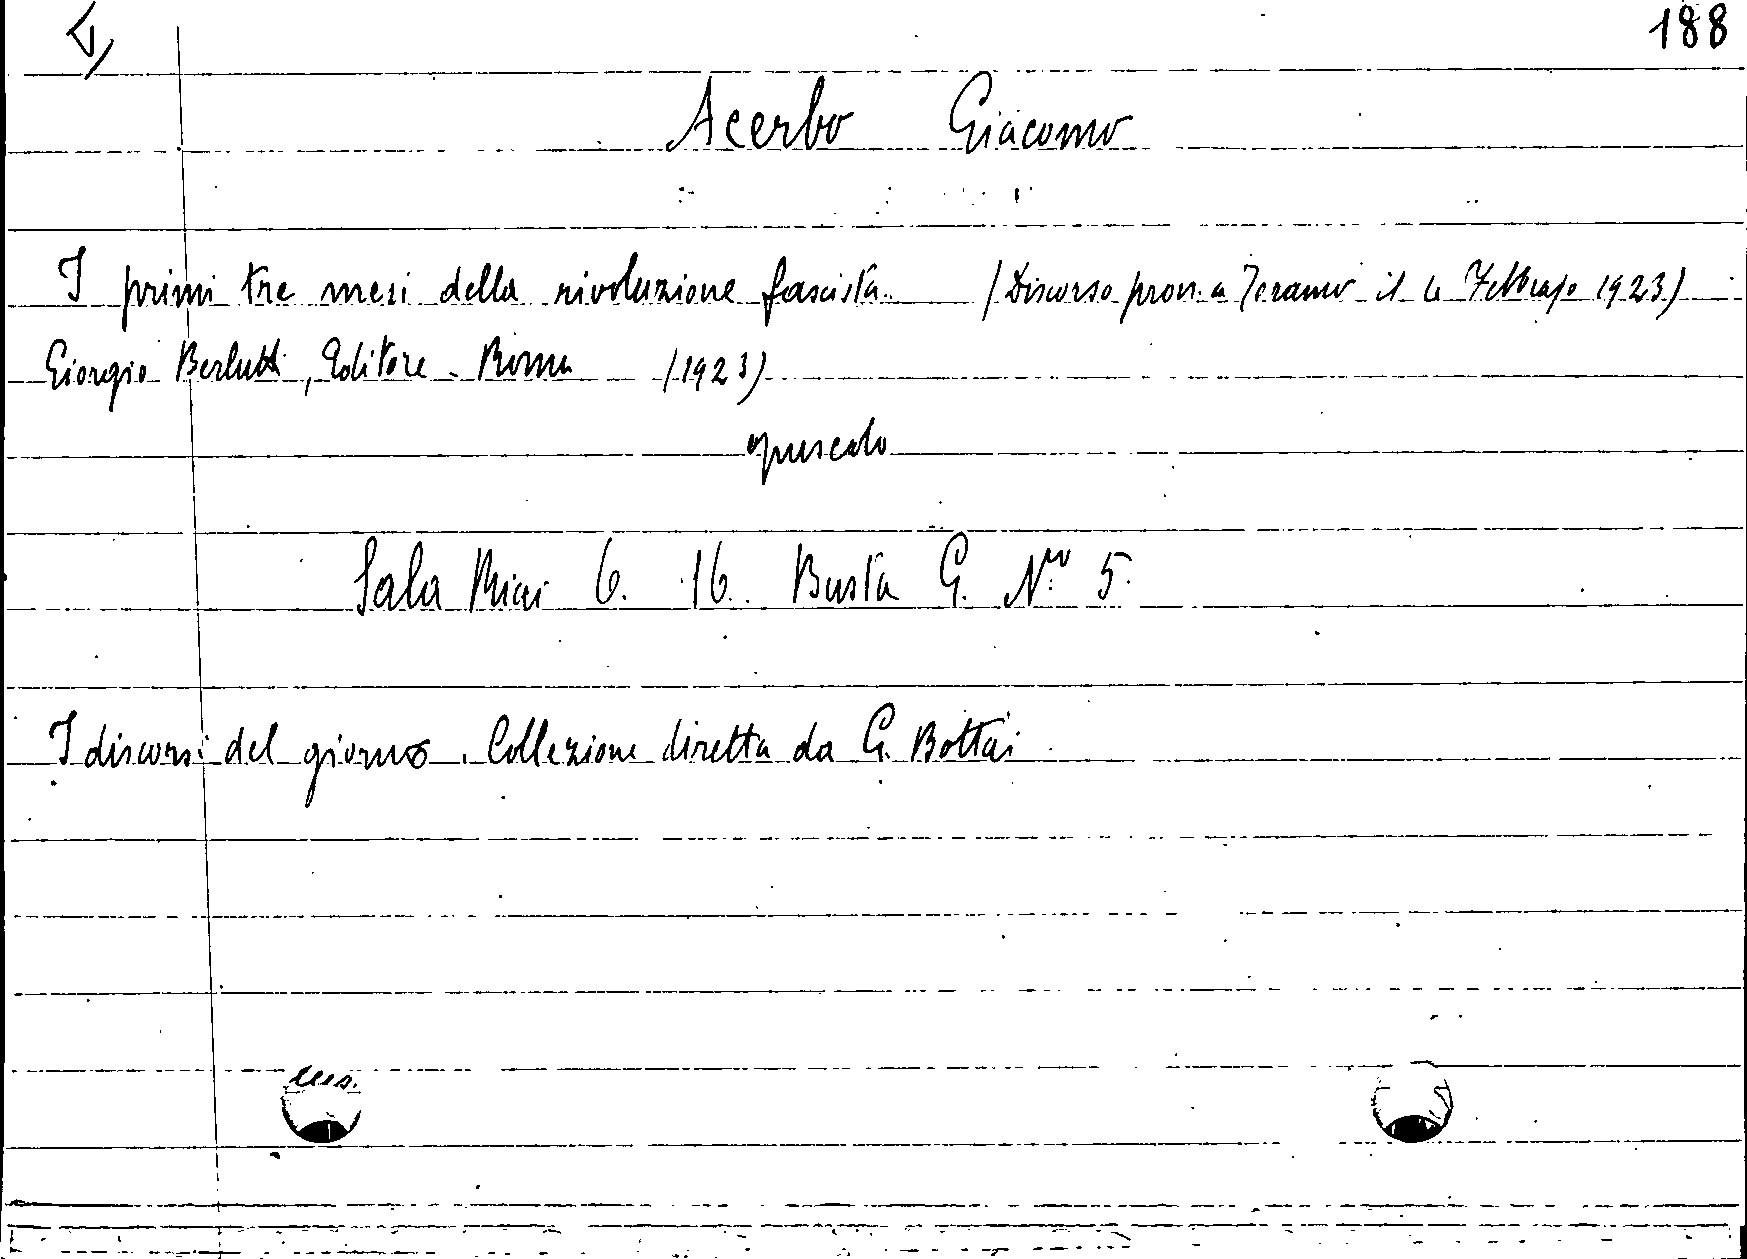 188
Acerbo Giacomo
I primi tre mesi della rivoluzione fascista. (Discorso pron. a Teramo il 4 Febbrajo 1923)
Giorgio Berlutti, Editore - Roma (1923)
opuscolo
Sala 6. 16. Busta G. Nro 5.
I discorsi del giorno. Collezione diretta da G. Bottai